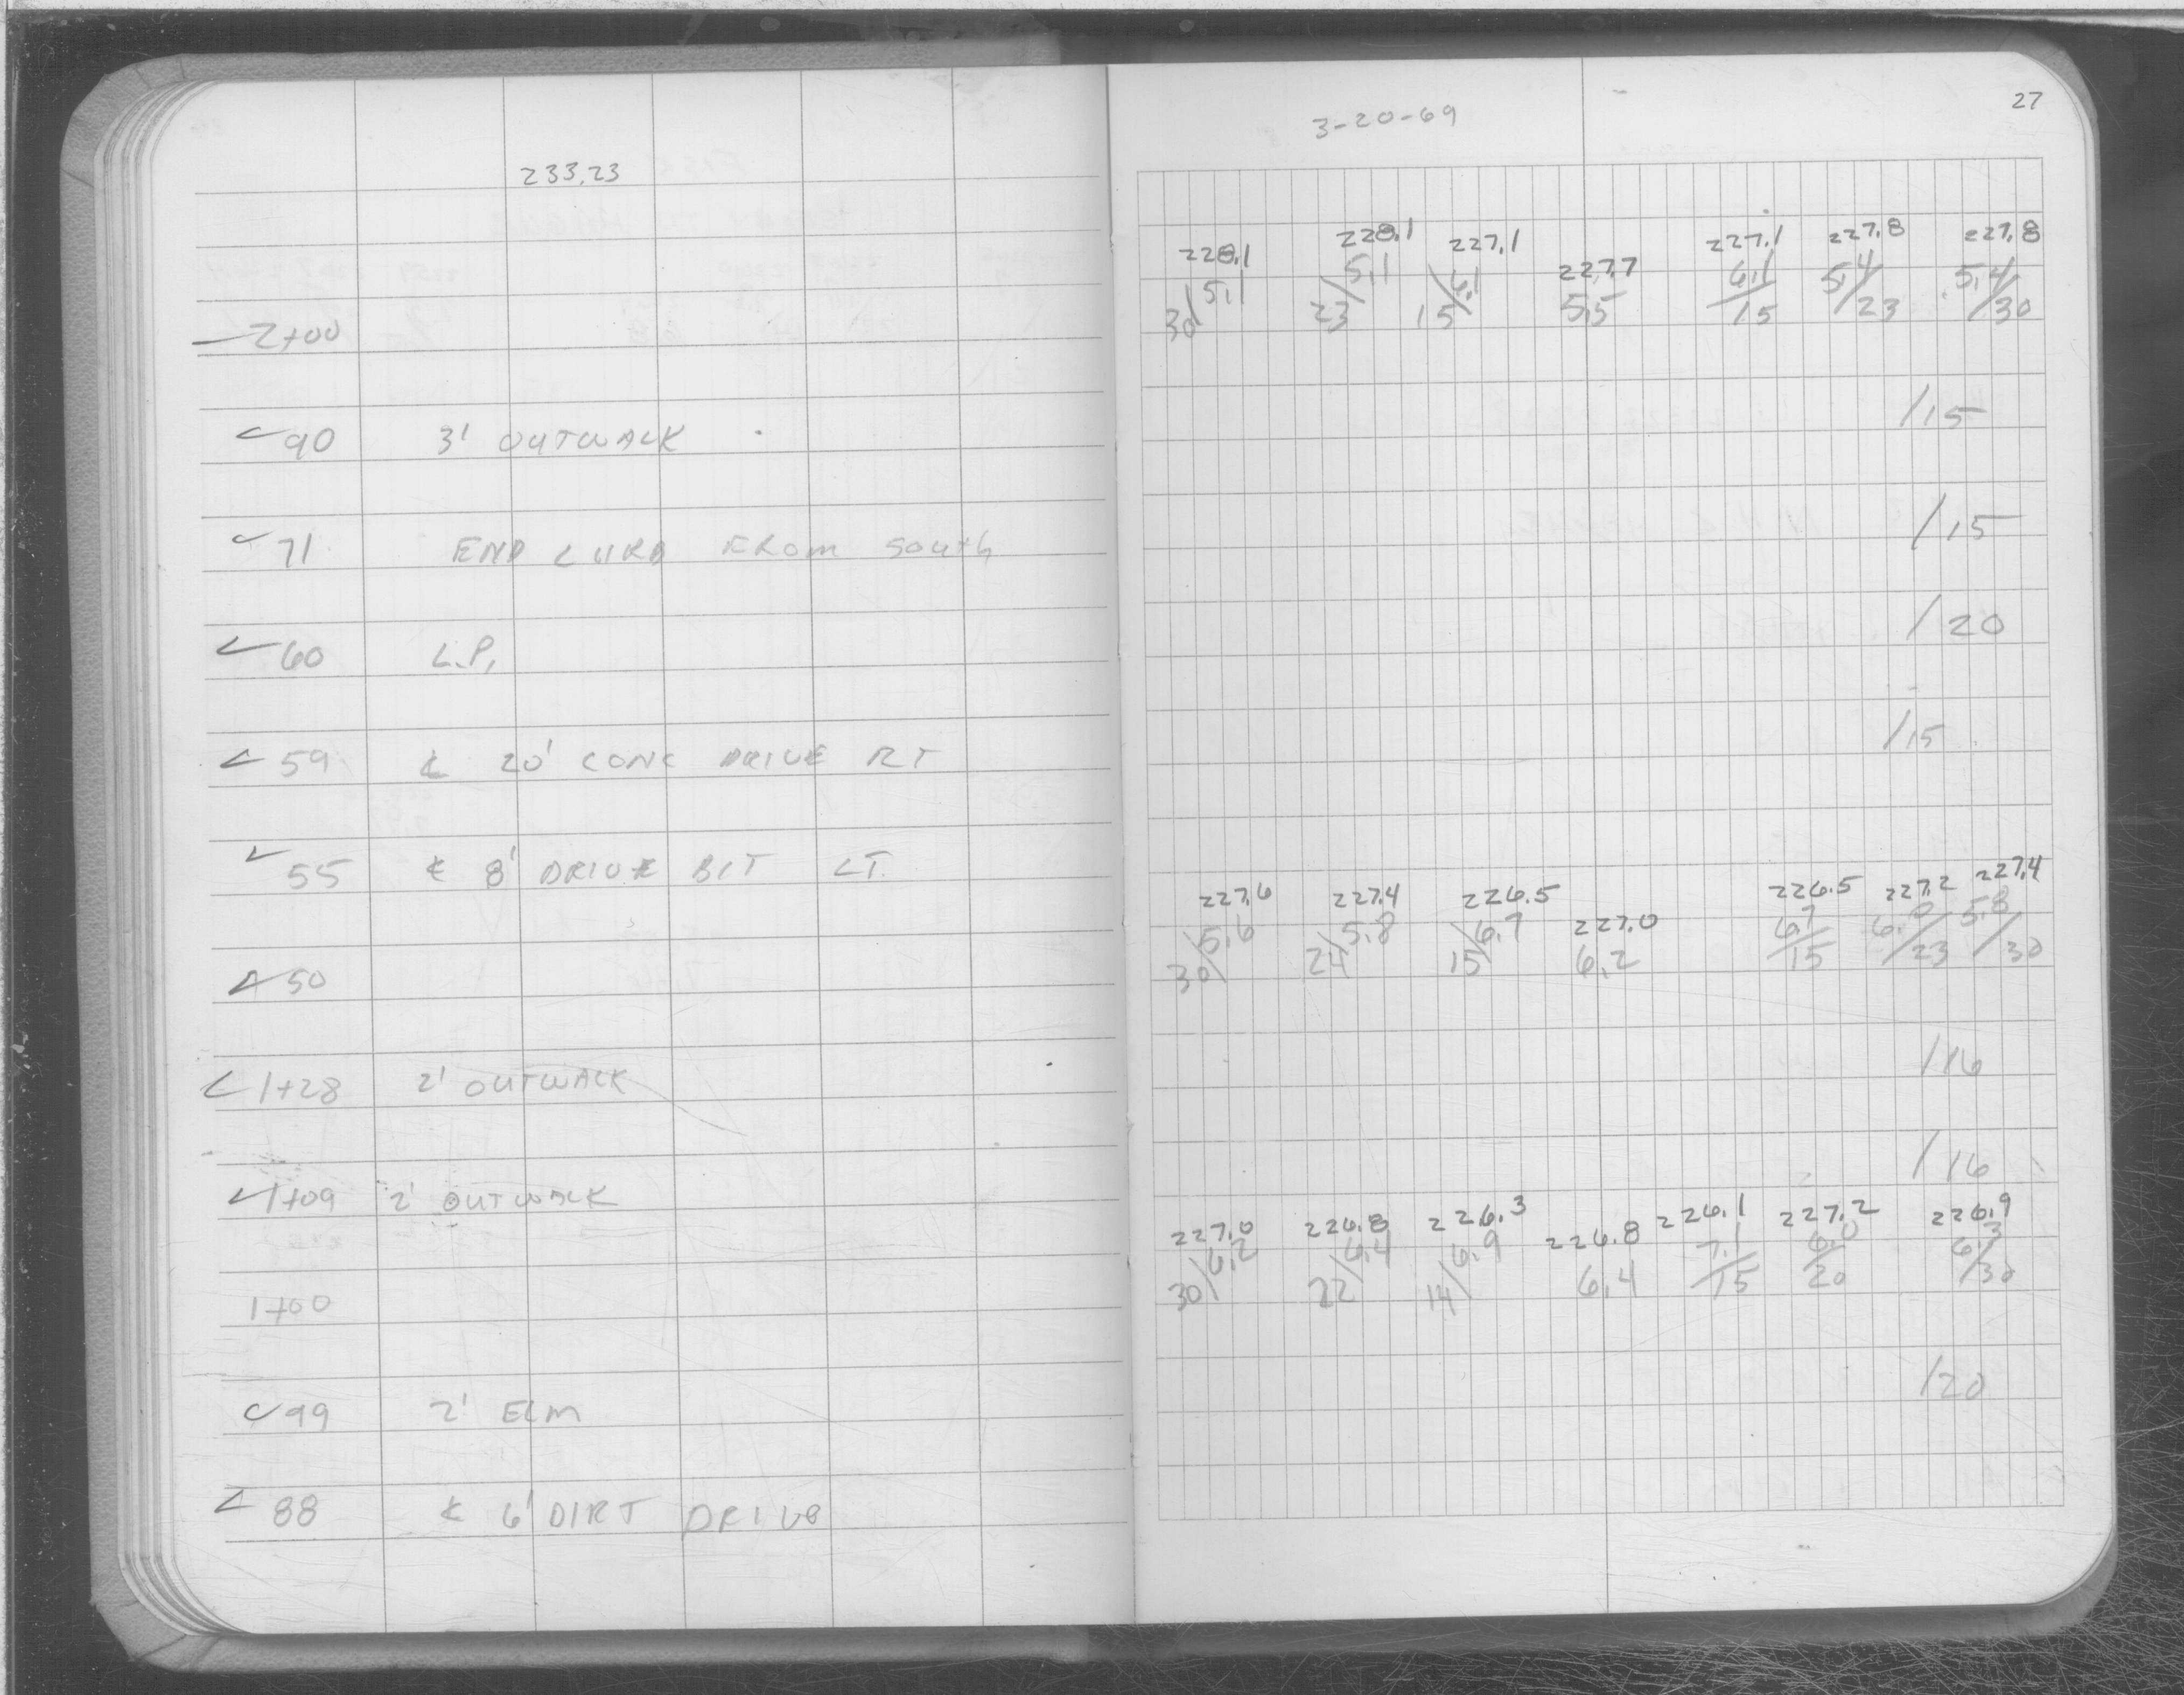 27
3-20-69
233.23
228.1 228.1 227.1 227.7 227.1 227.8 227.8
5.1 5.1 6.1 5.5 6.1 5.4 5.4
2+00 30 23 15 15 23 30
90 3' OUTWALK /15
71 END CURB FROM South /15
60 L.P. /20
59 ℄ 20' CONC DRIVE RT /15
55 ℄ 8' DRIVE BIT LT.
227.6 227.4 226.5 227.0 226.5 227.2 227.4
5.6 5.8 6.7 6.2 6.7 6.0 5.8
50 30 24 15 15 23 30
1+28 2' OUTWALK /16
1+09 2' OUTWALK /16
227.0 226.8 226.3 226.8 226.1 227.2 226.9
6.2 6.4 6.9 6.4 7.1 6.0 6.3
1+00 30 22 14 15 20 30
99 2' ELM /20
88 ℄ 6' DIRT DRIVE